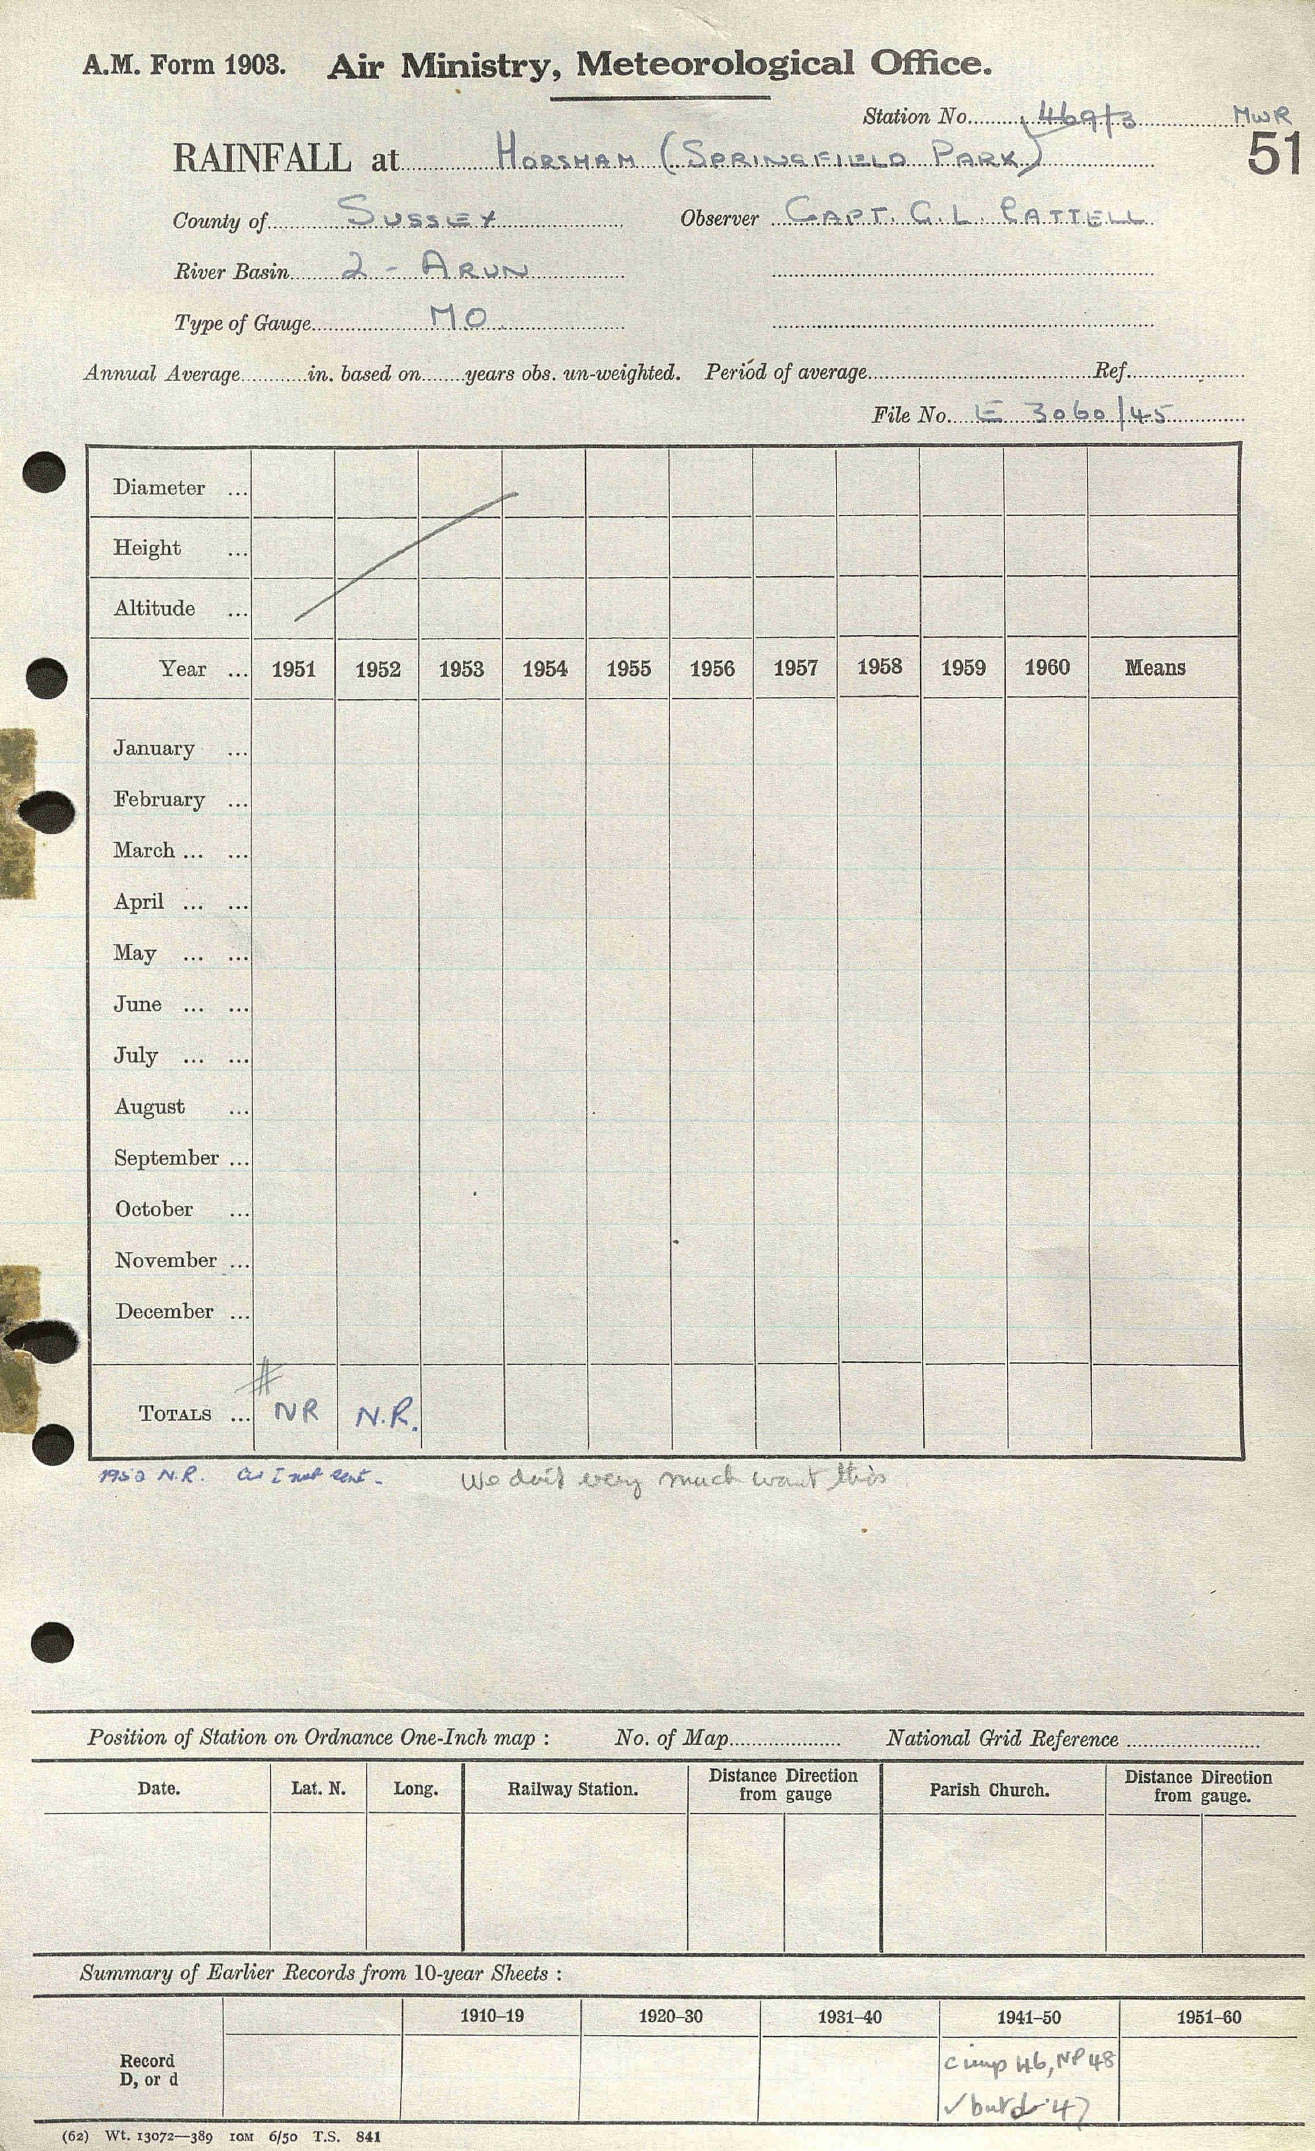 A.M. Form 1903. Air Ministry, Meteorological Office.
Station No. 469/3 MWR
RAINFALL at HORSHAM (SPRINGFIELD PARK) 51
County of SUSSEX Observer CAPT. G. L. CATTELL
River Basin 2 - ARUN
Type of Gauge MO
Annual Average in. based on years obs. un-weighted. Period of average Ref.
File No. E 3060/45
Diameter ...
Height ...
Altitude ...
Year ... 1951 1952 1953 1954 1955 1956 1957 1958 1959 1960 Means
January ...
February ...
March ... ...
April ... ...
May ... ...
June ... ...
July ... ...
August ...
September ...
October ...
November ...
December ...
TOTALS ... # NR N.R.
1950 N.R. I not sent.
We don't very much want this
Position of Station on Ordnance One-Inch map : No. of Map National Grid Reference
Date. Lat. N. Long. Railway Station. Distance Direction from gauge Parish Church. Distance Direction from gauge.
Summary of Earlier Records from 10-year Sheets :
1910–19 1920–30 1931–40 1941–50 1951–60
Record
D, or d
46, NP 48
✓ but 47
(62) Wt. 13072—389 10M 6/50 T.S. 841